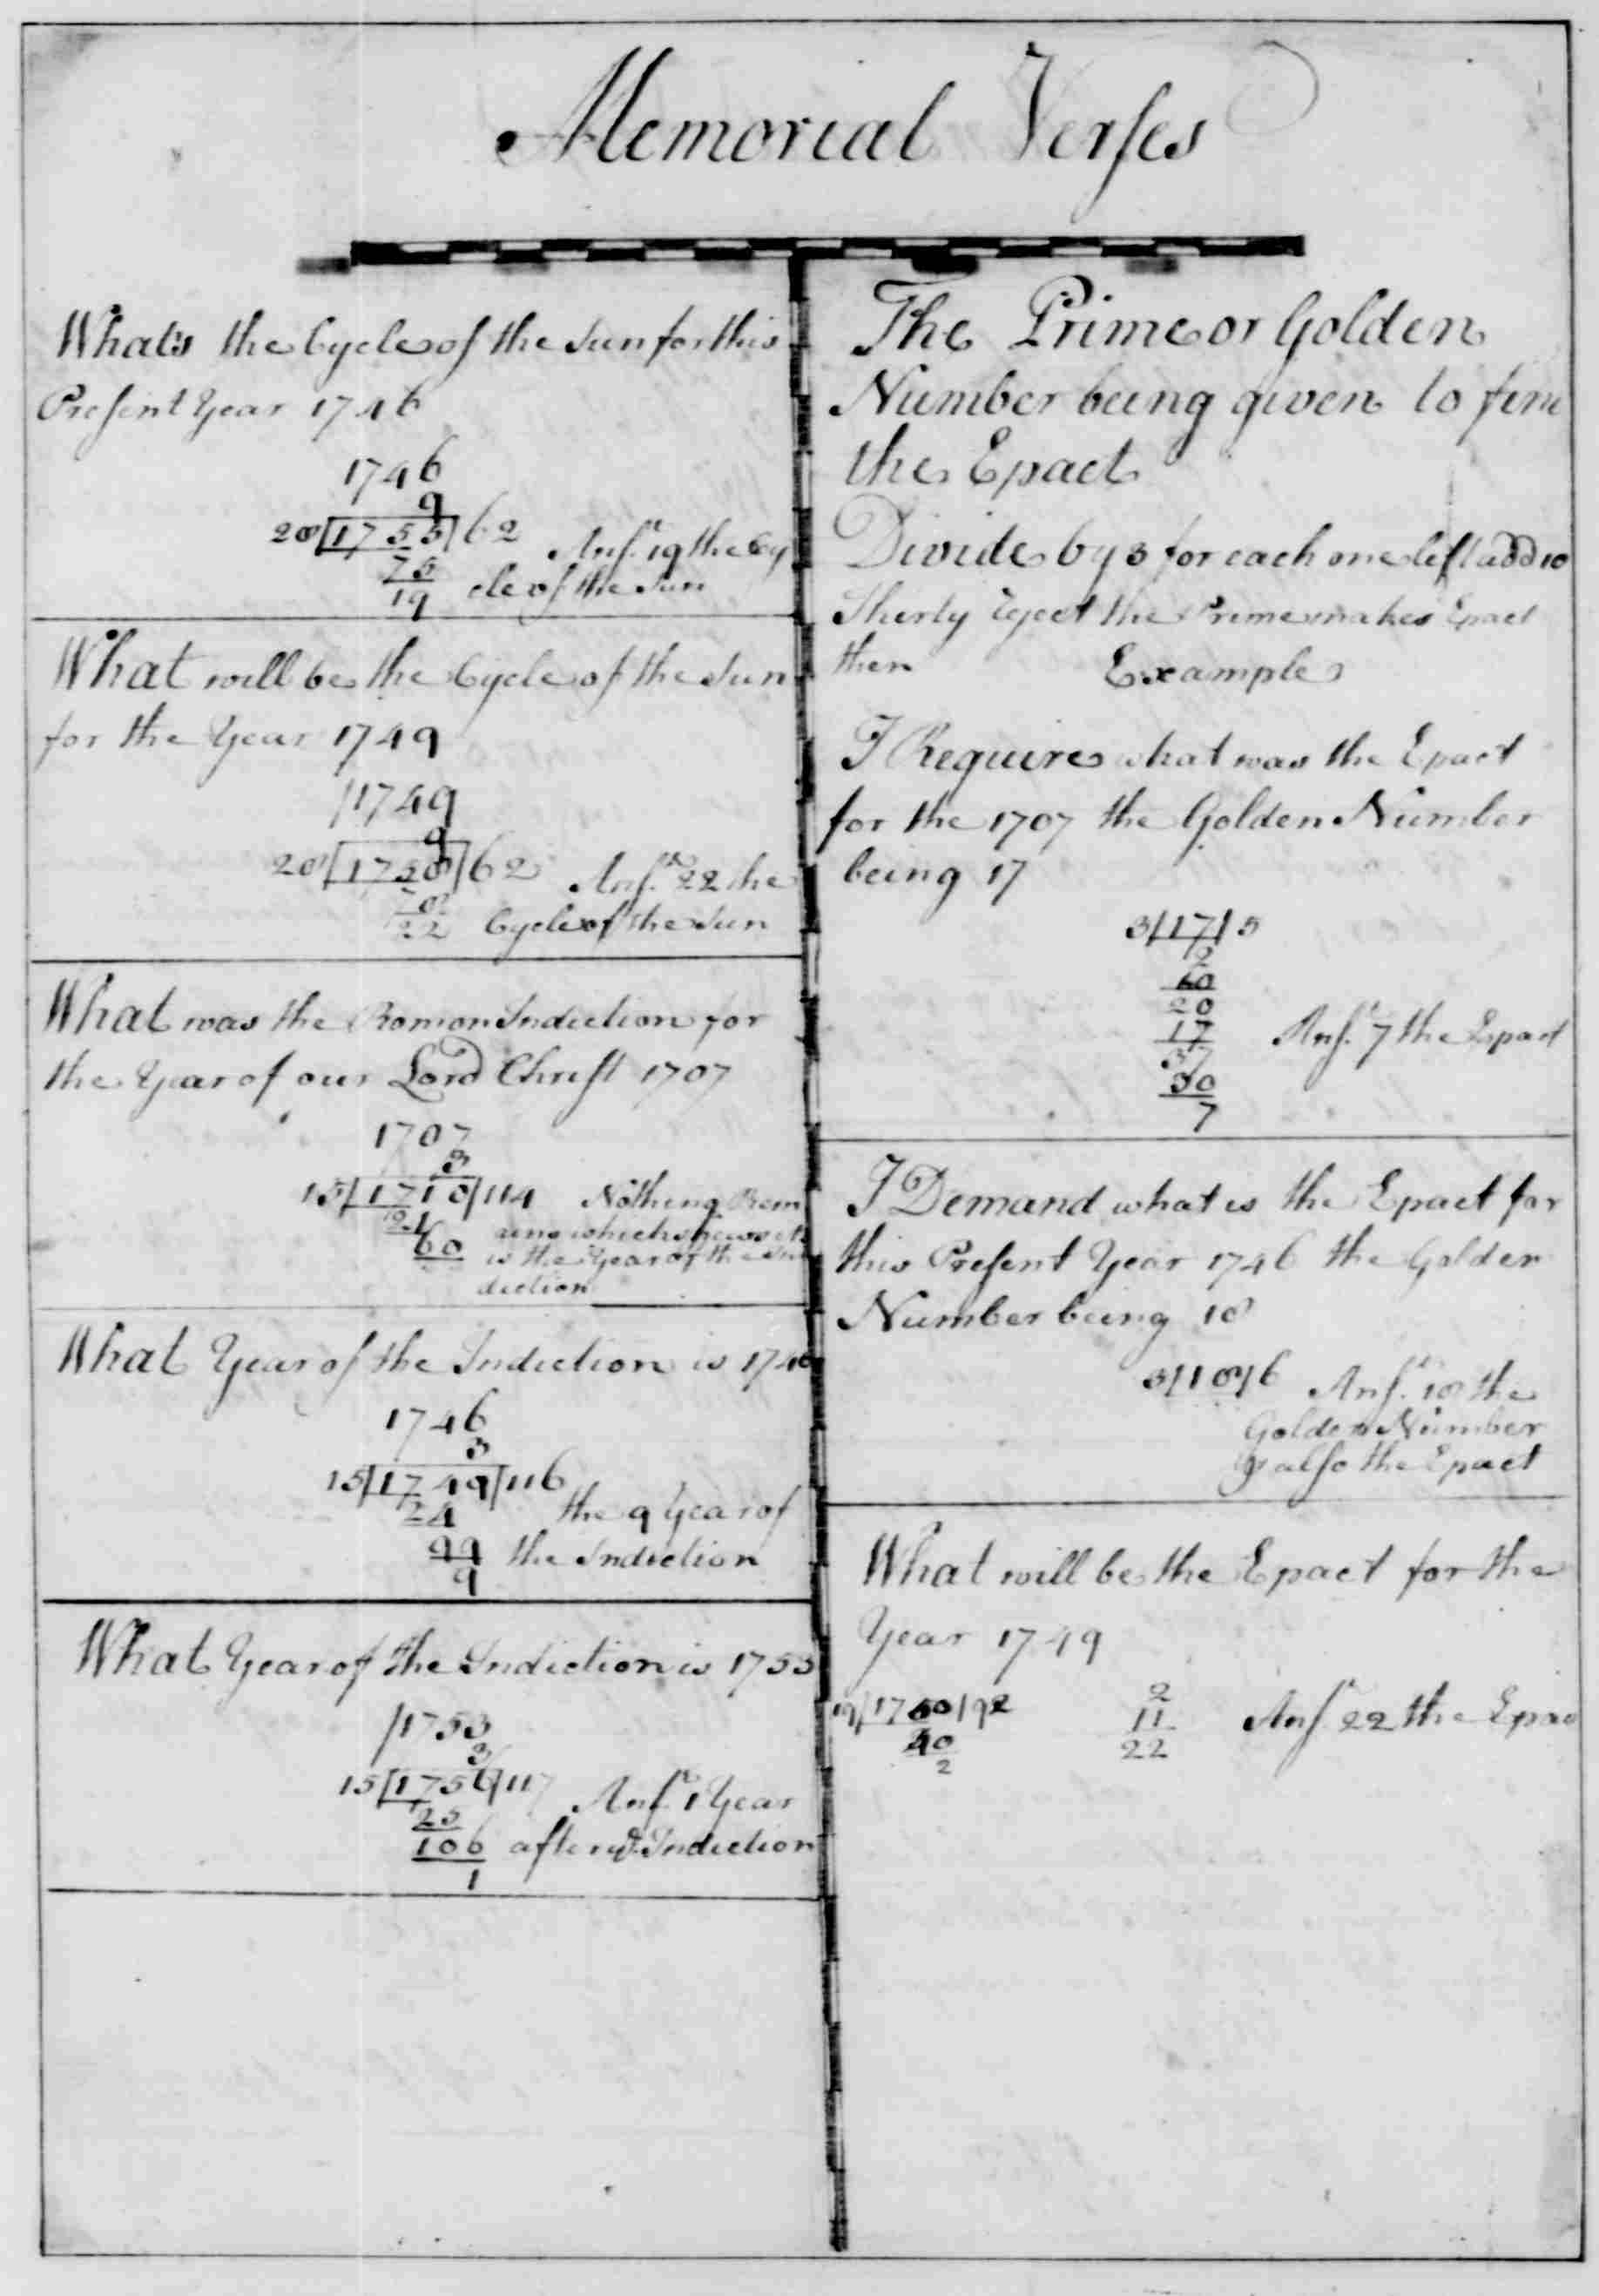 Memorial Verses
What's the Cycle of the Sun for this
Present Year 1746
1746
9
28 1755 62 Ansr. 19 the Cy
75
19 cle of the Sun
What will be the Cycle of the Sun
for the Year 1749
1749
9
28 1758 62 Ansr. 22 the
78
22 Cycle of the Sun
What was the Romon Indiction for
the Year of our Lord Christ 1707
1707
3
15 1710 114 Nothing Rem
21 ains which shews it
60 is the Year of the In
diction
What Year of the Indiction is 1746
1746
3
15 1749 116
24 the 9 Year of
99 the Indiction
9
What Year of the Indiction is 1753
1753
3
15 1756 117 Ansr. 1 Year
25
106 after ye. Indiction
1
The Prime or Golden
Number being given to fin
the Epact
Divide by 3 for each one left add 10
Thirty reject the Prime makes Epact
then Example
I Require what was the Epact
for the 1707 the Golden Number
being 17
3 17 5
2
10
20
17 Ansr. 7 the Epact
37
30
7
I Demand what is the Epact for
this Present Year 1746 the Golden
Number being 18
3 18 6 Ansr. 18 the
Golden Number
is also the Epact
What will be the Epact for the
Year 1749
19 1750 92 2
40 11 Ansr 22 the Epac
2 22